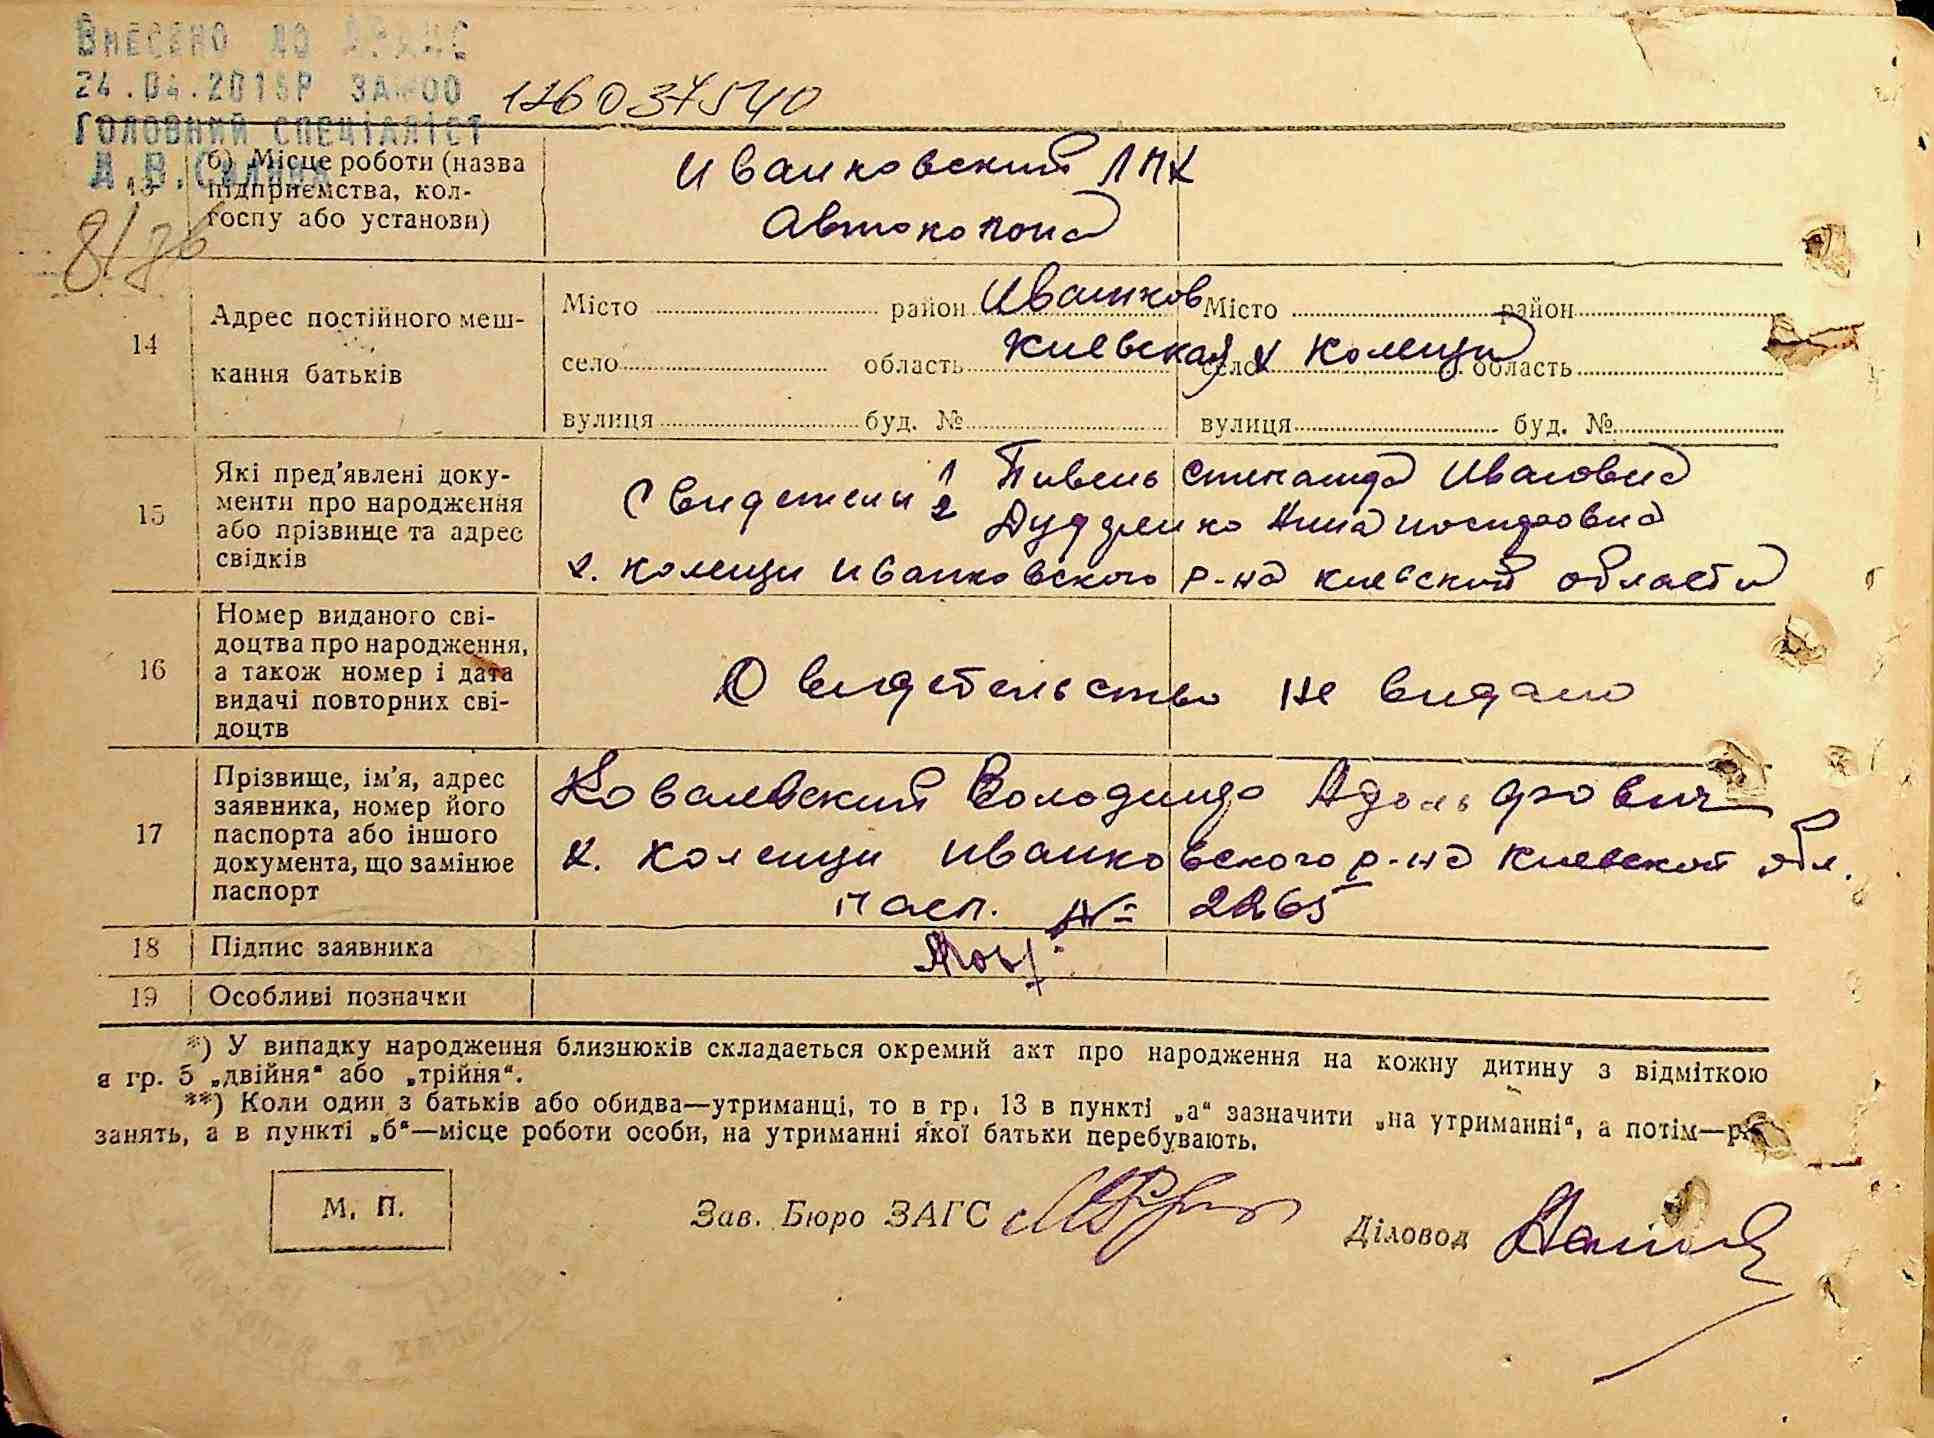 Внесено до ДРАЦС
24.04.2015р за №00
126037540
Головний спеціаліст
А.В.
13
б) Місце роботи (назва
підприємства, кол-
госпу або установи)
Иванковский ЛПХ
Автоколона
14
Адрес постійного меш-
кання батьків
Місто район Иванков Місто район
село область Киевская х Коленци село область
вулиця буд. № вулиця буд. №
15
Які пред'явлені доку-
менти про народження
або прізвище та адрес
свідків
Свидетели 1 Пивень Степанида Ивановна
2 Дудченко Анна Иосиповна
х. Коленци Иванковского р-на Киевской области
16
Номер виданого сві-
доцтва про народження,
а також номер і дата
видачі повторних сві-
доцтв
Свидетельство не видано
17
Прізвище, ім'я, адрес
заявника, номер його
паспорта або іншого
документа, що замінює
паспорт
Ковалевский Володимир Адольфович
х. Коленци Иванковского р-на Киевской обл.
пасп. № 2265
18 Підпис заявника
19 Особливі позначки
*) У випадку народження близнюків складається окремий акт про народження на кожну дитину з відміткою
в гр. 5 „двійня“ або „трійня“.
**) Коли один з батьків або обидва—утриманці, то в гр. 13 в пункті „а“ зазначити „на утриманні“, а потім—рід
занять, а в пункті „б“—місце роботи особи, на утриманні якої батьки перебувають.
М. П.
Зав. Бюро ЗАГС
Діловод